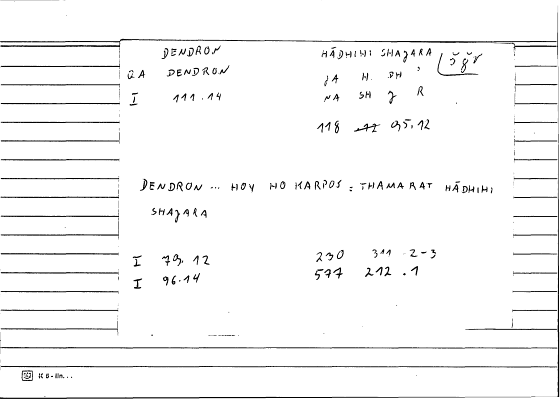 DENDRON HĀDHIHI SHAJARA š ǧ r
QA DENDRON JA H. DH '
I 111.14 NA SH J R
118 95.12
DENDRON ... HOY HO KARPOS : THAMARAT HĀDHIHI
SHAJARA
I 79.12 230 311 .2-3
I 96.14 577 212 .1
K 6 - lin. . .